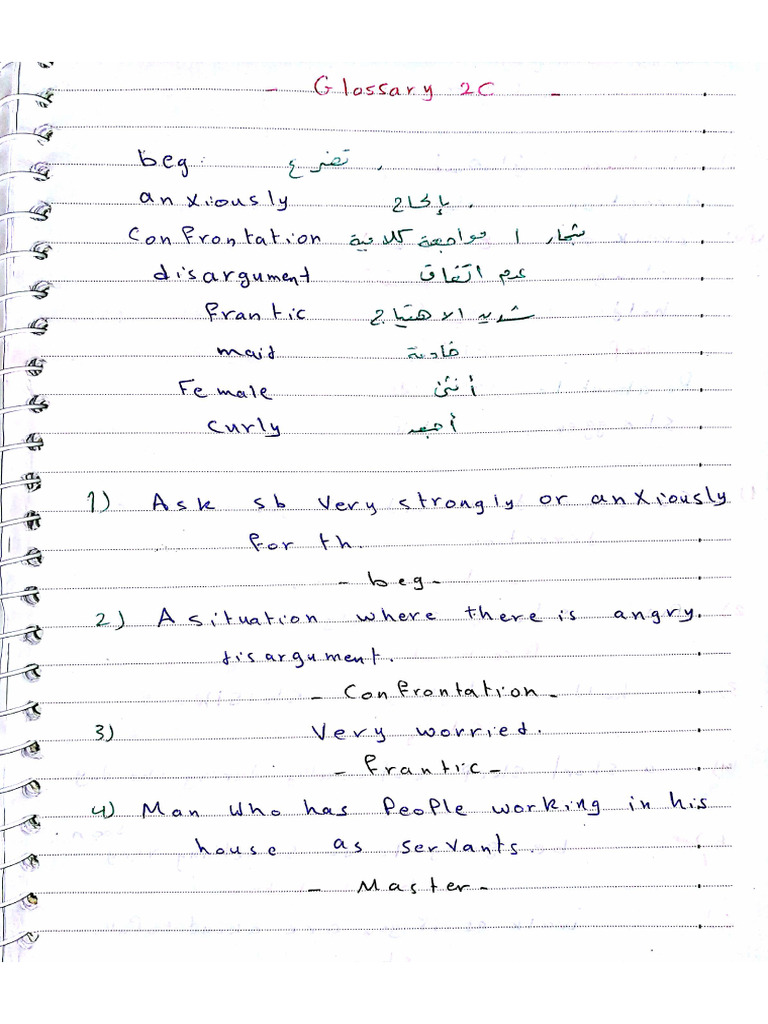 - Glossary 2C -
beg: تضرع
anxiously بإلحاح
Confrontation شجار / مواجهة كلامية
disargument عدم اتفاق
frantic شديد الاهتياج
maid خادمة
Female أنثى
Curly أجعد
1) Ask sb very strongly or anxiously
for th.
- beg -
2) A situation where there is angry.
disargument.
- Confrontation -
3) Very worried.
- frantic -
4) Man who has People working in his
house as servants.
- Master -